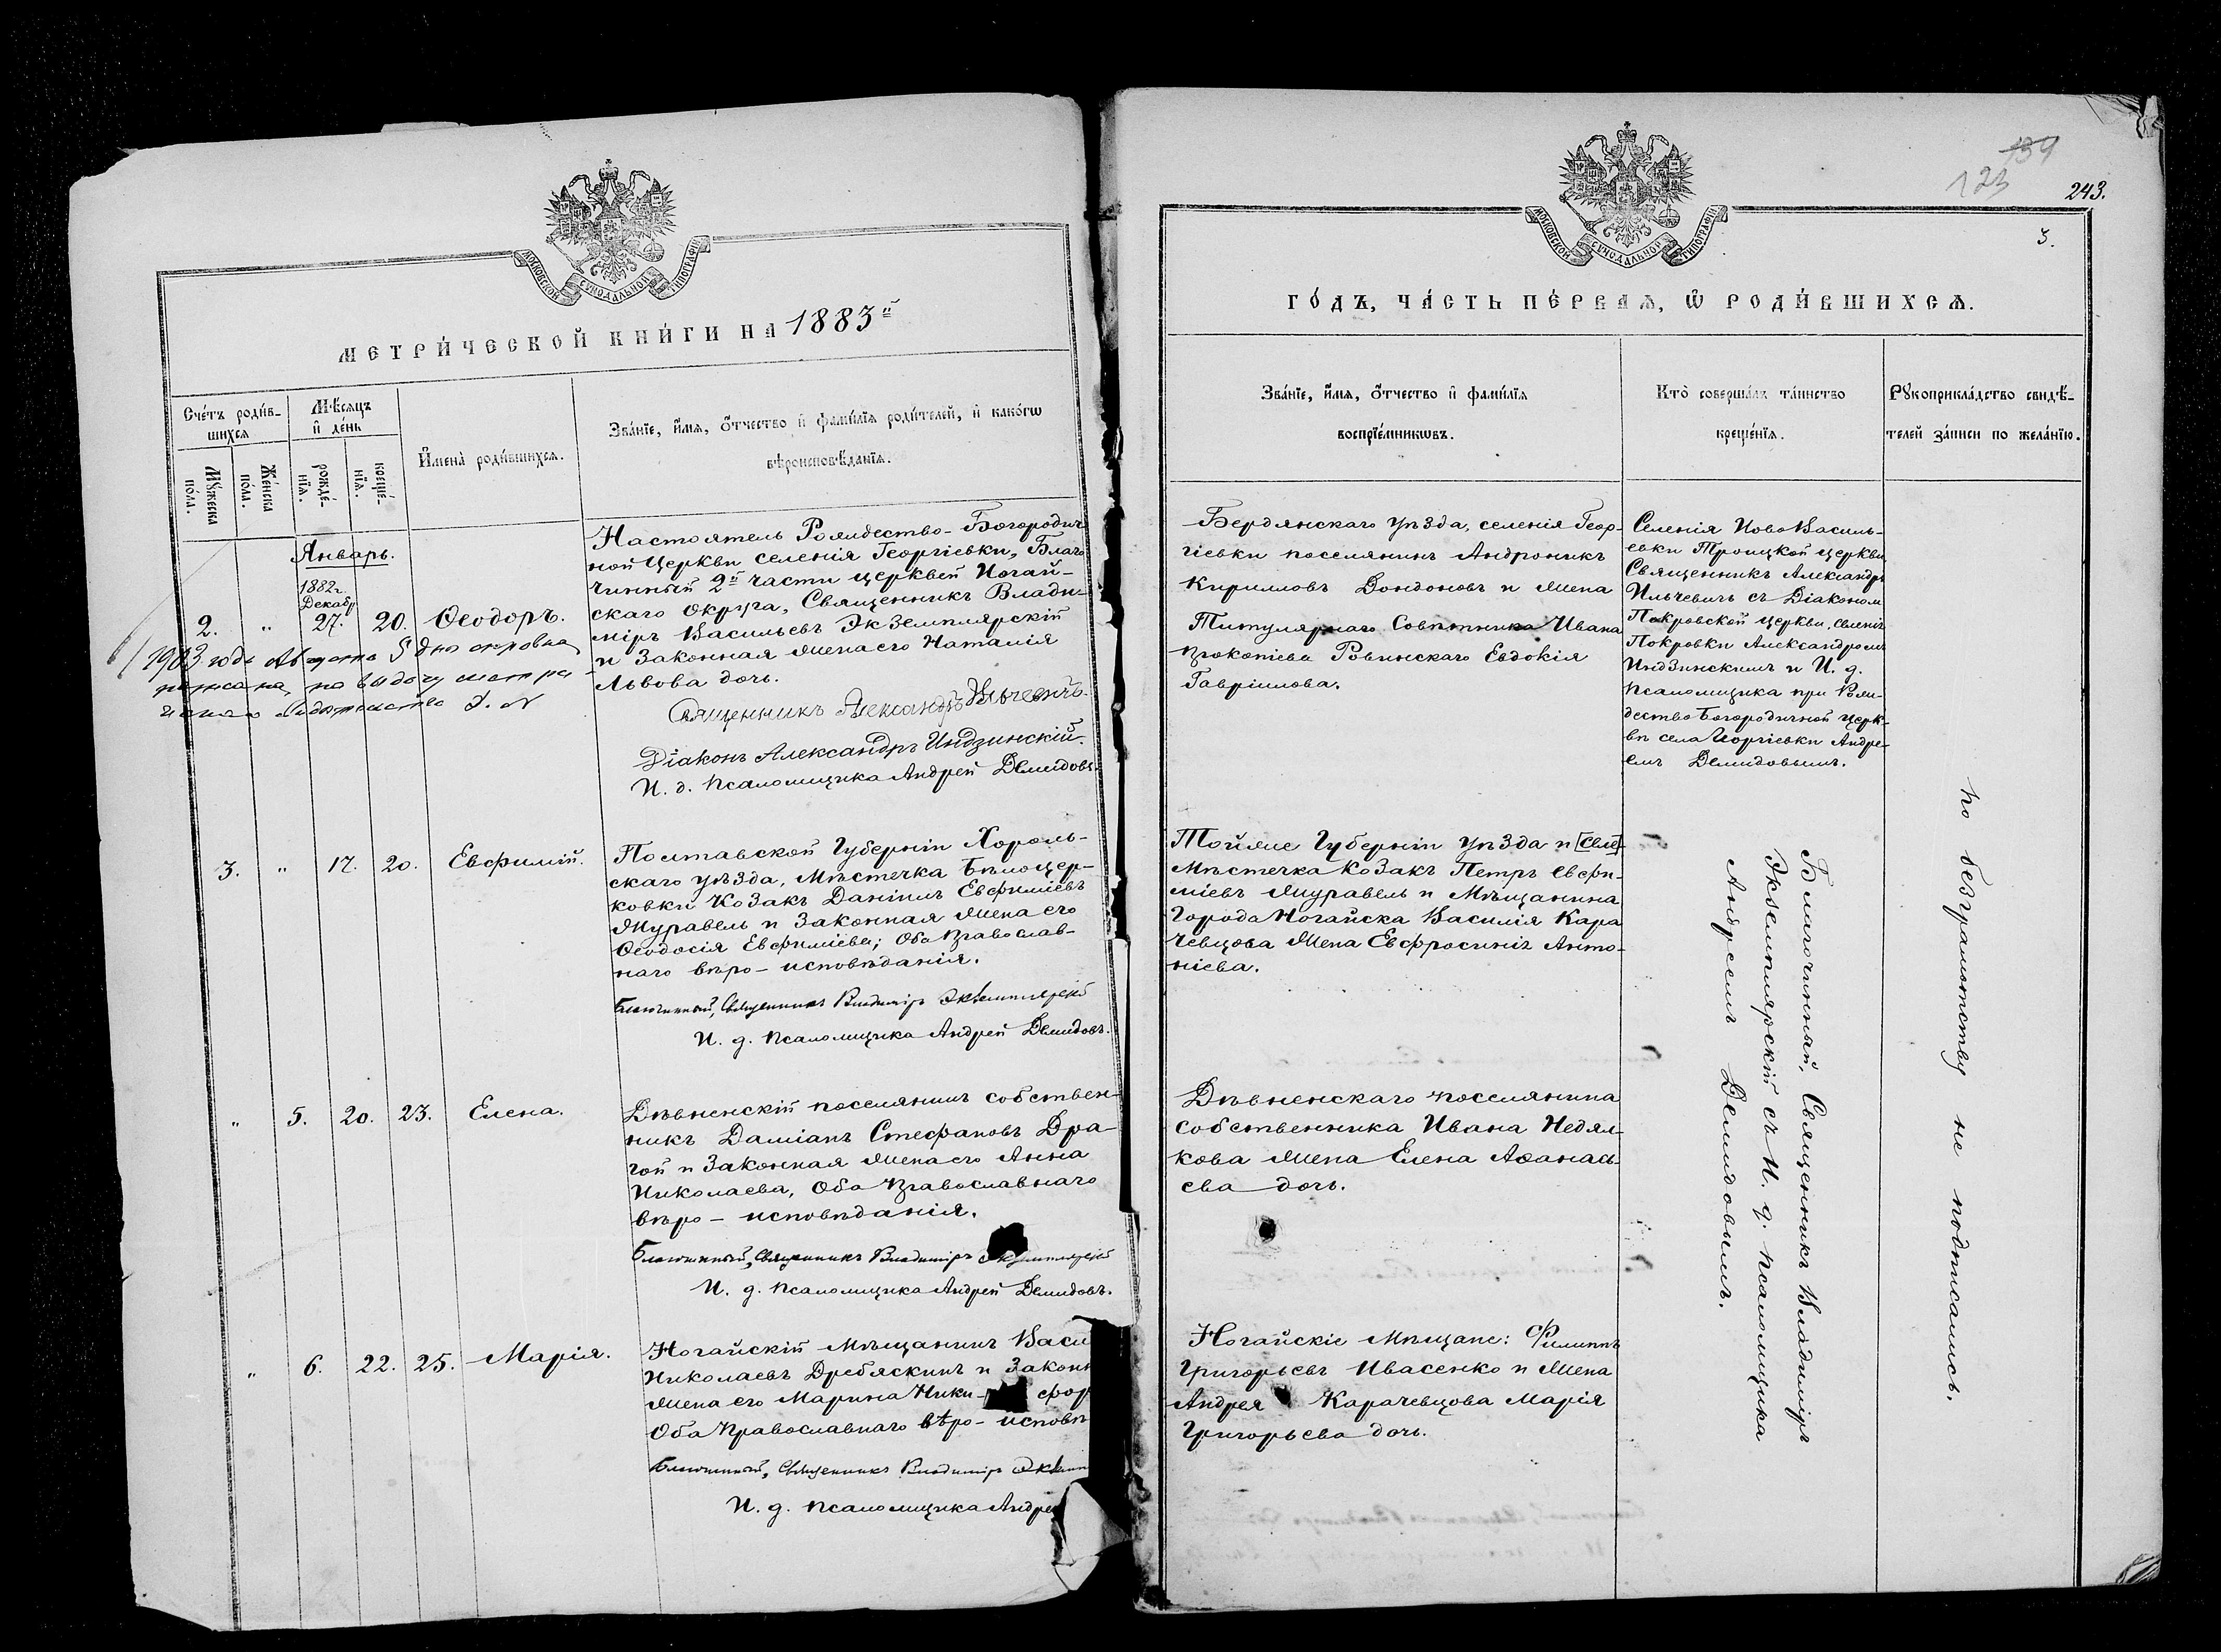 МОСКОВСКОЙ СѴНОДАЛЬНОЙ ТИПОГРАФІИ
МЕТРИ́ЧЕСКОЙ КНИ́ГИ НА 1883й
Сче́тъ роди́в-
шихся
Мѣ́сяцъ
и де́нь
Му́жеска
по́ла.
Же́нска
по́ла.
рожде́-
нїя.
креще́-
нїя.
И҆мена̀ роди́вшихся.
Зва́нїе, и҆́мя, ѻ҆́тчество и҆ фами́лїя роди́телей, и҆ како́гѡ
вѣроисповѣ́данїя.
Январь.
1882г.
Декабр
2. " 27. 20. Ѳеодоръ.
Настоятель Рождество-Богородич
ной Церкви селенія Георгіевки, Благо
чинный 2й части церквей Ногай-
скаго округа, Священникъ Влади-
міръ Васильевъ Экземплярскій
и законная жена его Наталія
Львова дочь.
Священникъ Александръ Ильчевичъ.
Діаконъ Александръ Индзинскій.
И. д. псаломщика Андрей Демидовъ.
1903 года Августа 5 дня
на выдачу метри
3. " 17. 20. Евфимій.
Полтавской Губерніи Хороль-
скаго уѣзда, Мѣстечка Бѣлоцер-
ковки Козакъ Даніилъ Евфиміевъ
Журавель и законная жена его
Ѳеодосія Евфиміева; Оба Православ-
наго вѣро-исповѣданія.
Благочинный, Священникъ Владиміръ Экземплярскій
И. д. псаломщика Андрей Демидовъ.
" 5. 20. 23. Елена.
Дѣвненскій поселянинъ собствен-
никъ Даміанъ Стефановъ Дра-
гой и законная жена его Анна
Николаева, Оба Православнаго
вѣро-исповѣданія.
Благочинный, Священникъ Владиміръ Экземплярскій
И. д. псаломщика Андрей Демидовъ.
" 6. 22. 25. Марія.
Ногайскій Мѣщанинъ Васи
Николаевъ Дребяскинъ и законн
жена его Марина Ники- фор
Оба Православнаго вѣро-исповѣ
Благочинный, Священникъ Владиміръ Экземп
И. д. псаломщика Андрей
139
123
243.
3.
МОСКОВСКОЙ СѴНОДАЛЬНОЙ ТИПОГРАФІИ
ГО́ДЪ, ЧА́СТЬ ПЕ́РВАЯ, Ѡ҆ РОДИ́ВШИХСЯ.
Зва́нїе, и҆́мя, ѻ҆́тчество и҆ фами́лїя
воспрїе́мникѡвъ.
Кто̀ соверша́лъ та́инство
креще́нїя.
Рꙋкоприкла́дство свидѣ́-
телей за́писи по жела́нїю.
Бердянскаго уѣзда, селенія Геор-
гіевки поселянинъ Андроникъ
Кирилловъ Дондоновъ и жена
Титулярнаго Совѣтника Ивана
Прокопіева Ровинскаго Евдокія
Гавріилова.
Селенія Ново Василь-
евки Троицкой церкви
Священникъ Александръ
Ильчевичъ съ Діакономъ
Покровской церкви, селенія
Покровки Александромъ
Индзинскимъ и И. д.
псаломщика при Рож-
дество Богородичной церк-
ви села Георгіевки Андре-
емъ Демидовымъ.
Тойже Губерніи уѣзда и [селе]
Мѣстечка Козакъ Петръ Евфи-
міевъ Журавель и Мѣщанина
Города Ногайска Василія Кара
чевцова жена Евфросинія Анто-
ніева.
Дѣвненскаго поселянина
собственника Ивана Недял-
кова жена Елена Аѳанась-
ева дочь.
Ногайскіе Мѣщане: Филиппъ
Григорьевъ Ивасенко и жена
Андрея Карачевцова Марія
Григорьева дочь.
Благочинный, Священникъ Владиміръ
Экземплярскій съ И. д. псаломщика
Андреемъ Демидовымъ.
по безграмотству не подписались.